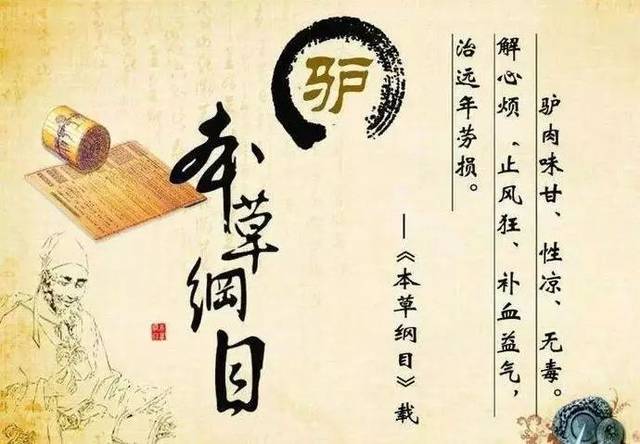 驴
本草纲目
驴肉味甘、性凉、无毒。
解心烦、止风狂、补血益气，
治远年劳损。
—《本草纲目》载